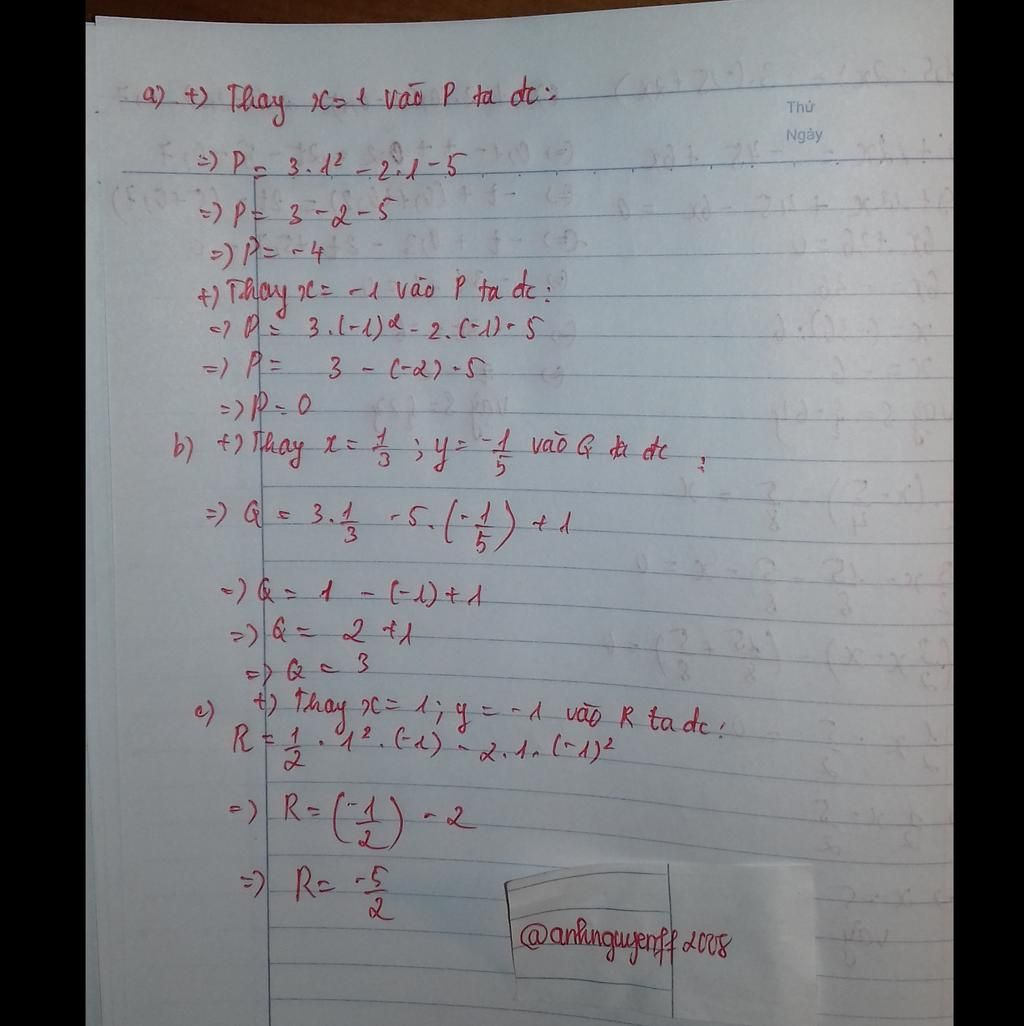 a) +) Thay x = 1 vào P ta dc:
Thứ
Ngày
=> P = 3.1² - 2.1 - 5
=> P = 3 - 2 - 5
=> P = -4
+) Thay x = -1 vào P ta dc:
=> P = 3.(-1)² - 2.(-1) - 5
=> P = 3 - (-2) - 5
=> P = 0
b) +) Thay x = 1/3 ; y = -1/5 vào Q ta dc :
=> Q = 3.1/3 - 5.(-1/5) + 1
=> Q = 1 - (-1) + 1
=> Q = 2 + 1
=> Q = 3
c) +) Thay x = 1; y = -1 vào R ta dc:
R = 1/2 . 1² . (-1) - 2.1.(-1)²
=> R = (-1/2) - 2
=> R = -5/2
@anhnguyenff2008